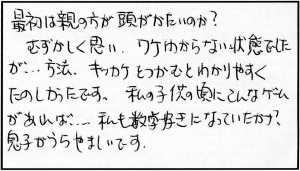 最初は親の方が頭がかたいのか?
むずかしく思い、ワケわからない状態でした
が…方法、キッカケとつかむとわかりやすく
たのしかったです。私の子供の頃にこんなゲーム
があれば…、私も数学好きになっていたかな?
息子がうらやましいです。